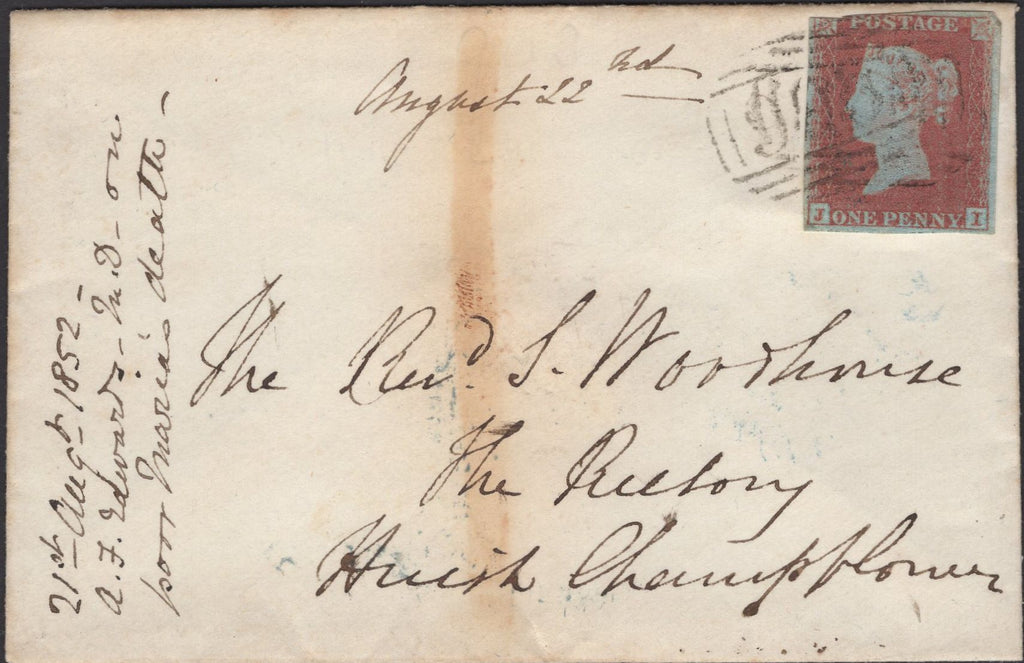 August 22nd
POSTAGE
J ONE PENNY I
The Revd. S. Woodhouse
The Rectory
Huish Champflower
21st Augt 1852 -
A. F. Edwards - M.D - on
poor Maria's death -